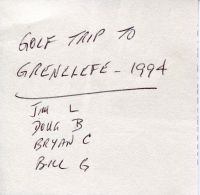 GOLF TRIP TO
GRENELEFE - 1994
JIM L
DOUG B
BRYAN C
BILL G